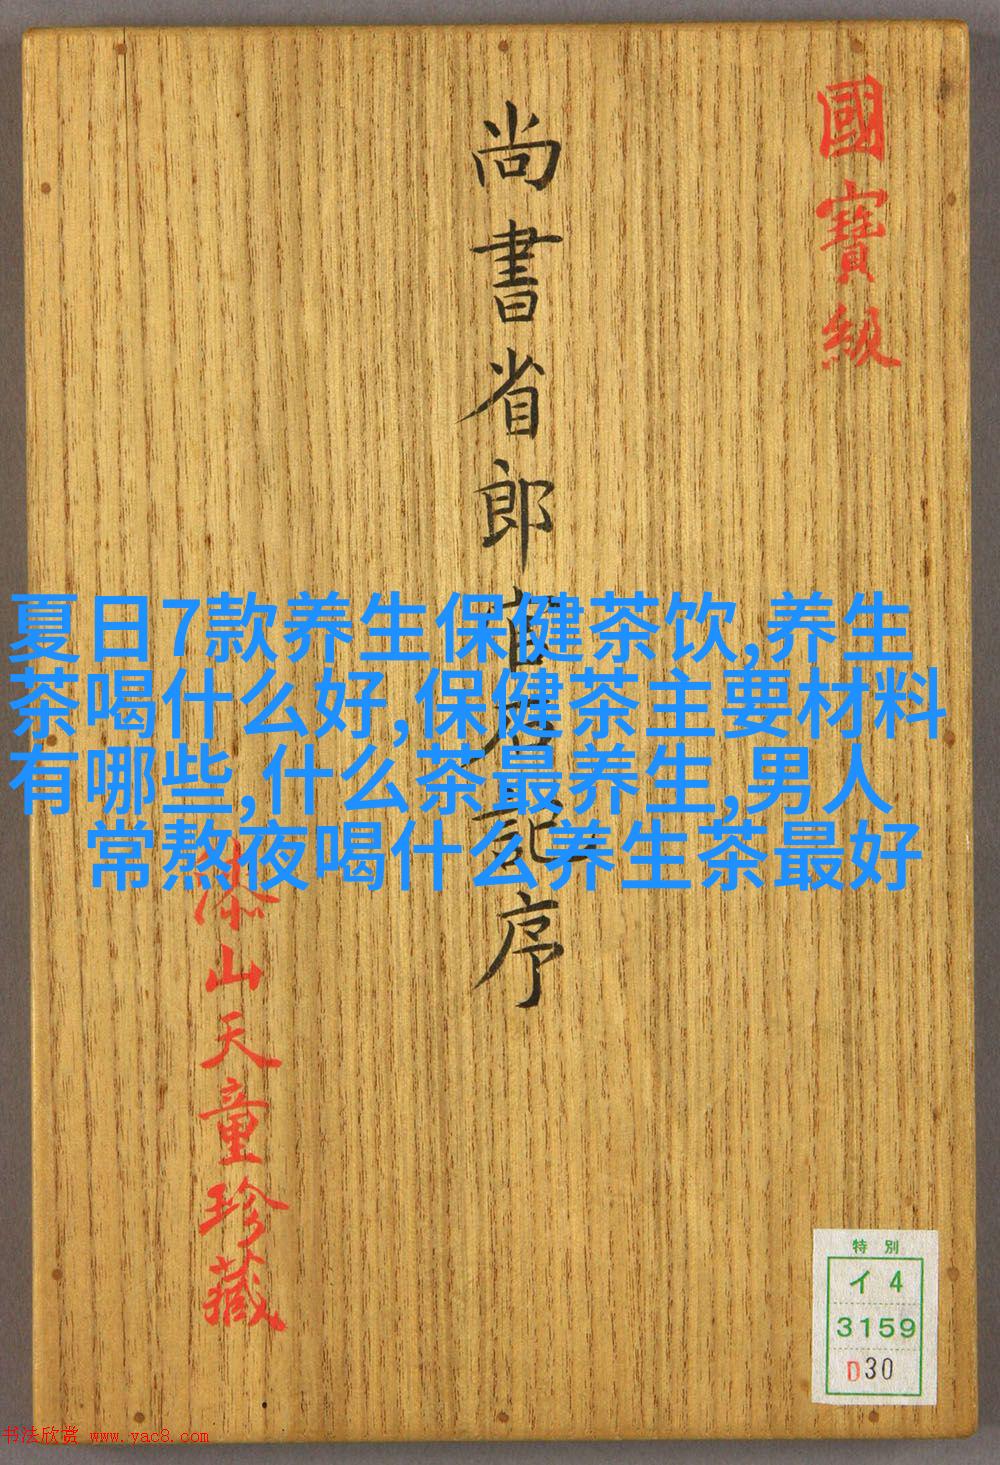 國寶級
尚書省郎官石記序
泰山天童珍藏
夏日7款养生保健茶饮,养生
茶喝什么好,保健茶主要材料
有哪些,什么茶最养生,男人
常熬夜喝什么养生茶最好
特別
イ4
3159
D30
书法欣赏 www.yac8.com